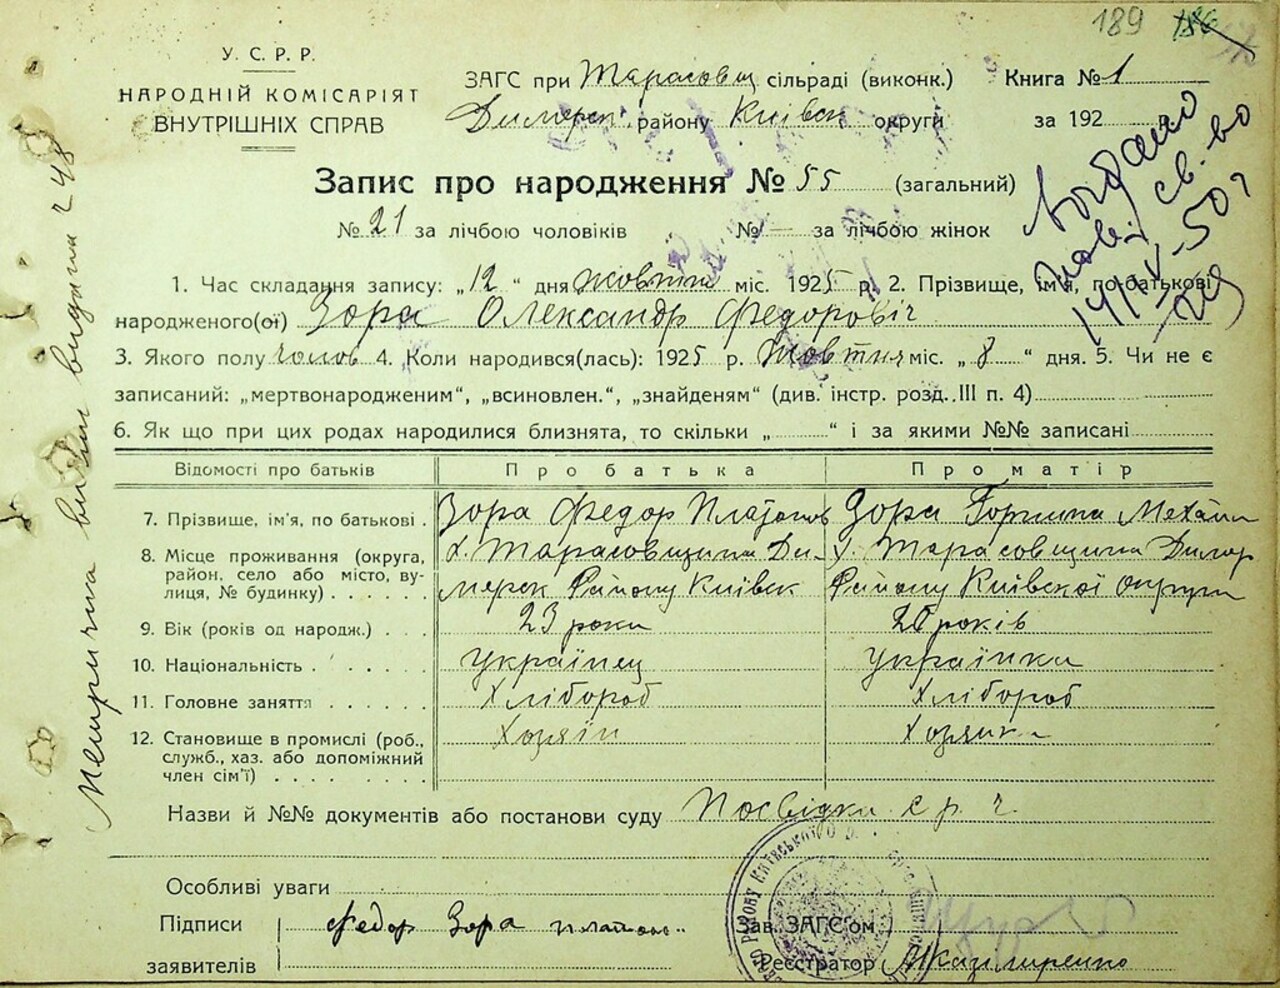 189
У. С. Р. Р.
НАРОДНІЙ КОМІСАРІЯТ
ВНУТРІШНІХ СПРАВ
ЗАГС при Тарасовщ сільраді (виконк.)
Димерськ. району Київськ округи
Книга № 1
за 192
Запис про народження № 55 (загальний)
№ 21 за лічбою чоловіків № — за лічбою жінок
1. Час складання запису: „12“ дня жовтня міс. 1925 р. 2. Прізвище, ім'я, по батькові
народженого(ої) Зора Олександр Федоровіч
3. Якого полу чолов 4. Коли народився(лась): 1925 р. Жовтня міс. „8“ дня. 5. Чи не є
записаний: „мертвонародженим“, „всиновлен.“, „знайденям“ (див. інстр. розд. III п. 4)
6. Як що при цих родах народилися близнята, то скільки „ “ і за якими №№ записані
Відомості про батьків Про батька Про матір
7. Прізвище, ім'я, по батькові . Зора Федор Платонов Зора Горпина Механ
8. Місце проживання (округа, район, село або місто, вулиця, № будинку) х. Тарасовщина Димерск Району Київск х. Тарасовщина Димер Району Київской округи
9. Вік (років од народж.) . . . 23 роки 26 років
10. Національність . . . . . . Українец Українка
11. Головне заняття . . . . . . Хлібороб Хлібороб
12. Становище в промислі (роб., служб., хаз. або допоміжний член сім'ї) . . . . . . . . Хозяїн Хозяйка
Назви й №№ документів або постанови суду Посвідки с р. ч.
Особливі уваги
Підписи Федор Зора платон..
заявителів
Зав. ЗАГС'ом
Реєстратор МКазімиренко
Метрична виписка видана 48
Видано
нові св. во
14/IV-50 г